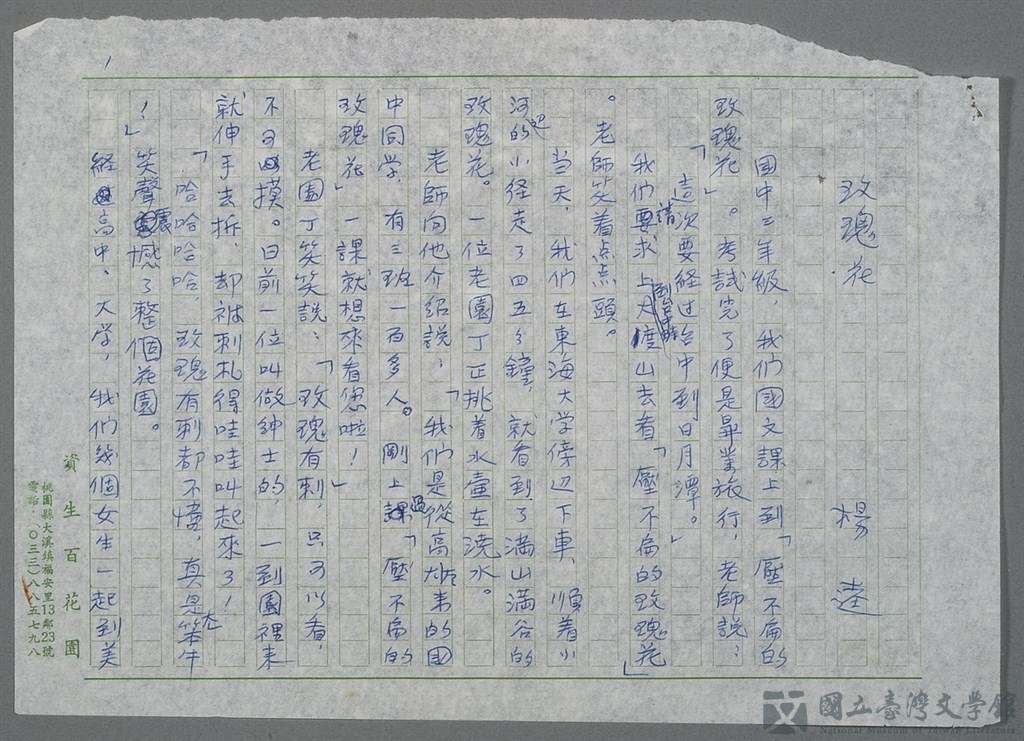 1
玫瑰花　楊逵
國中三年級，我們國文課上到「壓不扁的
玫瑰花」。考試完了便是畢業旅行，老師說：
「這次要經过台中到日月潭。」
我們要求請上大度山去看「壓不扁的玫瑰花」
。老師笑着点点頭。
當天，我們在東海大学傍辺下車，順着小
河的小径走了四五分鐘，就看到了满山满谷的
玫瑰花。一位老園丁正挑着水壺在澆水。
老師向他介紹説：「我們是從高雄來的國
中同学，有三班一百多人。剛上過「壓不扁的
玫瑰花」一課就想來看您啦！」
老園丁笑笑説：「玫瑰有刺，只可以看，
不可以摸。日前一位叫做紳士的，一到園裡來
就伸手去折，却被刺扎得哇哇叫起來了！
「哈哈哈哈，玫瑰有刺都不懂，真是大笨牛
！」笑聲震憾了整個花園。
經過高中、大学，我們幾個女生一起到美
資生百花園
桃園縣大溪鎮福安里13鄰23號
電話：（〇三三）八八五七九八
國立臺灣文學館
National Museum of Taiwan Literature